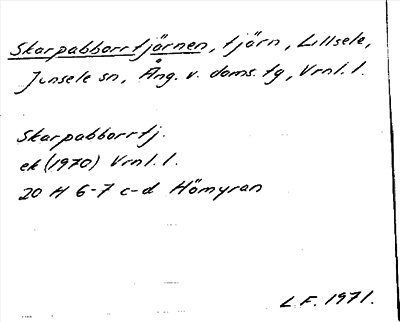 Skarpabborrtjärnen, tjärn, Lillsele,
Junsele sn, Ång. v. doms. tg, Vrnl. l.
Skarpabborrtj.
ek (1970) Vrnl. l.
20 H 6-7 c-d Hömyran
L.F. 1971.